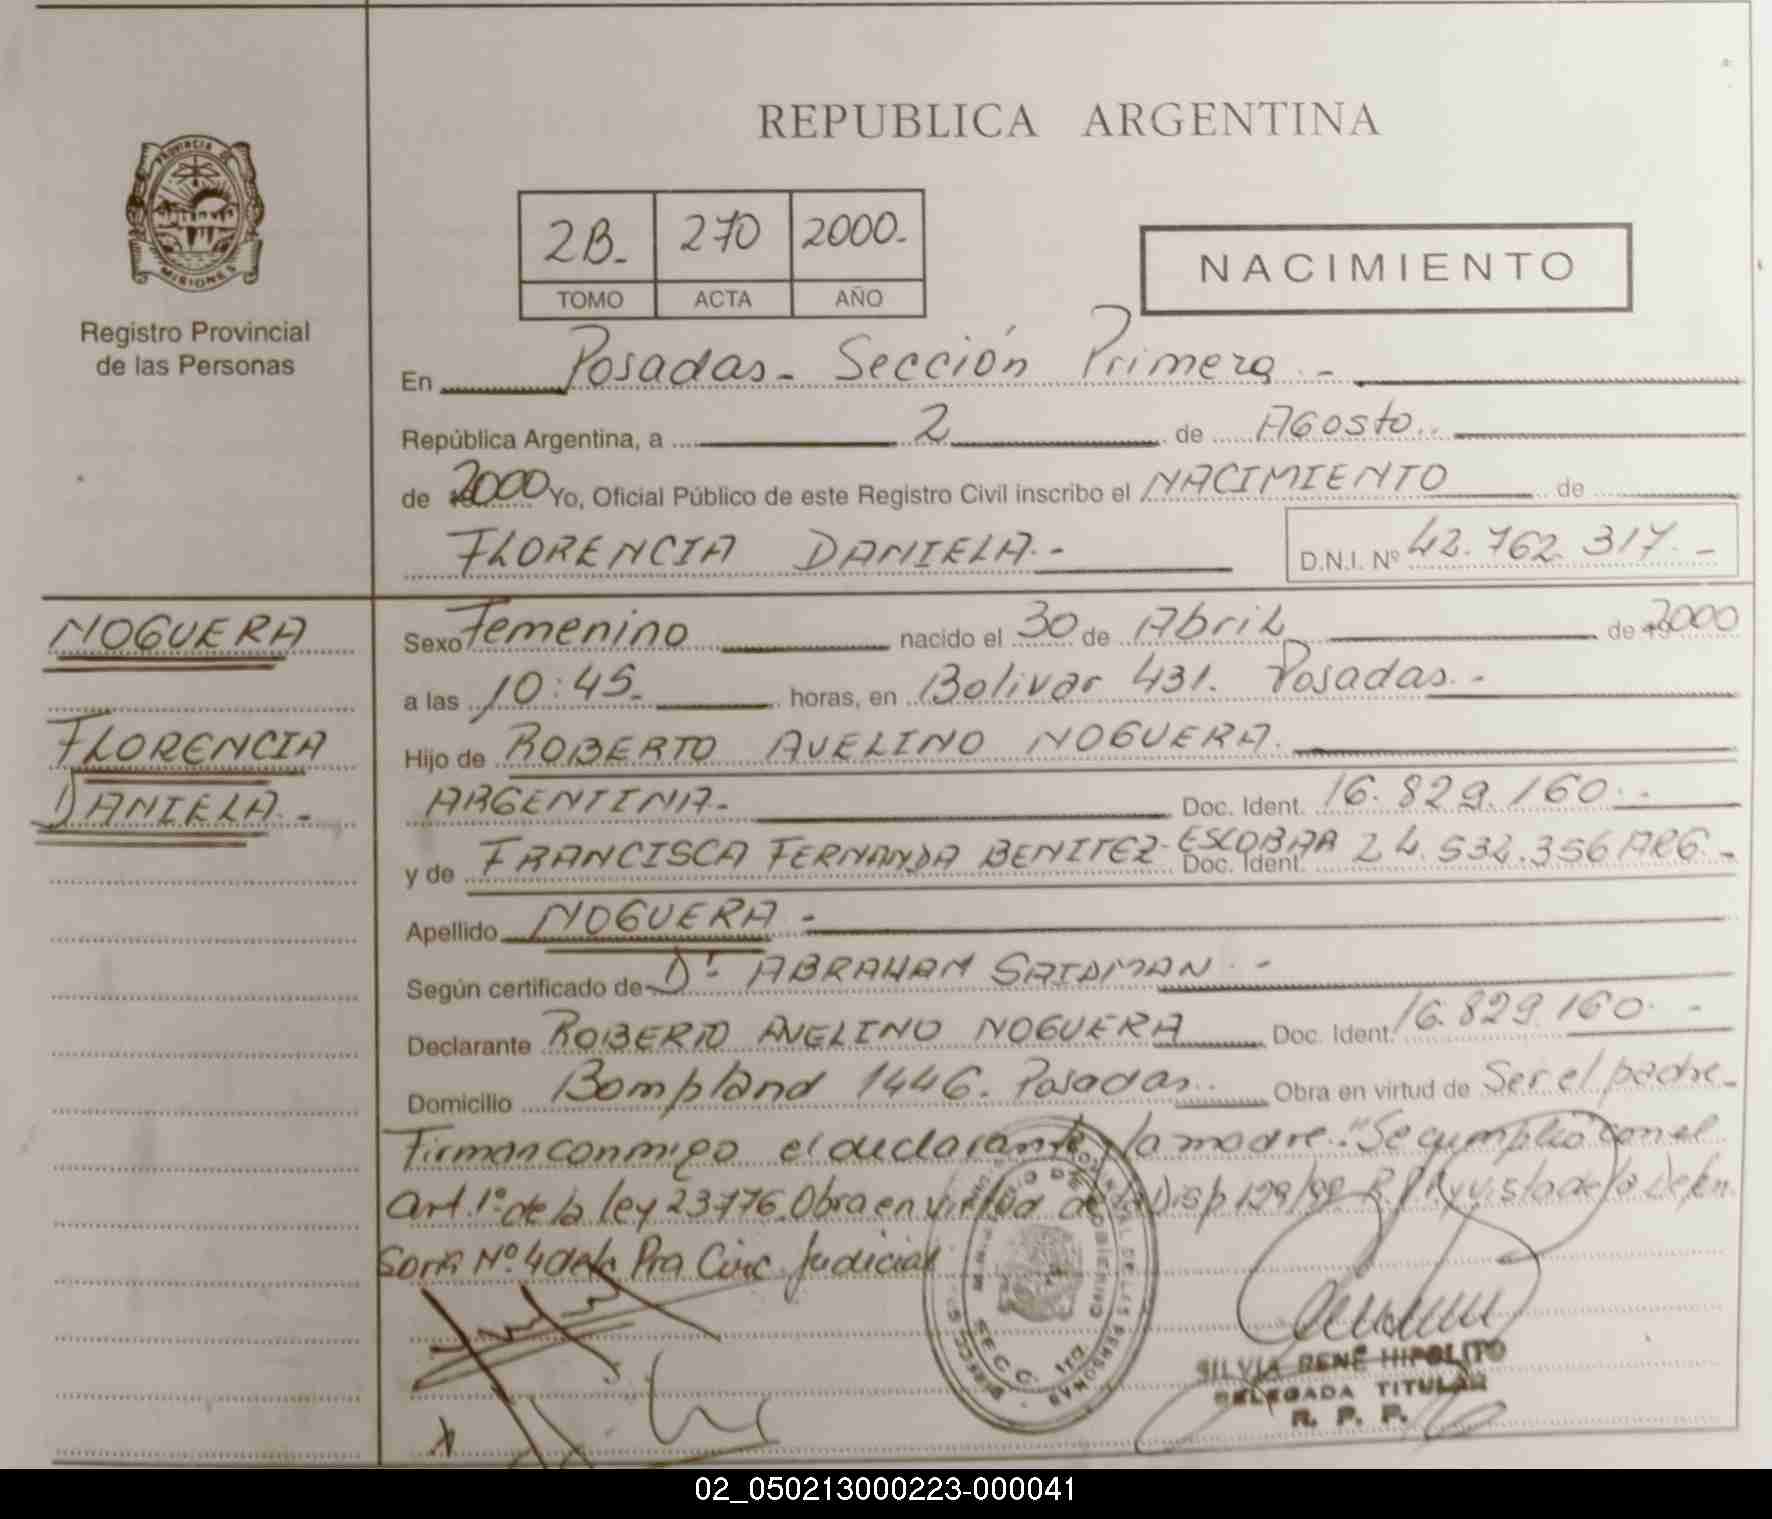 REPUBLICA ARGENTINA
PROVINCIA DE
MISIONES
Registro Provincial
de las Personas
2B- 270 2000-
TOMO ACTA AÑO
NACIMIENTO
En Posadas - Sección Primera -
República Argentina, a 2 de Agosto
de 2000 Yo, Oficial Público de este Registro Civil inscribo el NACIMIENTO de
FLORENCIA DANIELA.-
D.N.I. Nº 42.762.317.-
NOGUERA
FLORENCIA
DANIELA.-
Sexo Femenino nacido el 30 de Abril de 2000
a las 10:45- horas, en Bolivar 431. Posadas.-
Hijo de ROBERTO AVELINO NOGUERA.
ARGENTINA.- Doc. Ident. 16.829.160.-
y de FRANCISCA FERNANDA BENITEZ ESCOBAR Doc. Ident. 24.532.356 ARG.-
Apellido NOGUERA.-
Según certificado de Dr. ABRAHAM SAIDMAN.-
Declarante ROBERTO AVELINO NOGUERA Doc. Ident. 16.829.160.-
Domicilio Bompland 1446. Posadas. Obra en virtud de Ser el padre.-
Firman conmigo el declarante y la madre. "Se cumplió con el
Art. 1º de la ley 23776. Obra en virtud de la Disp 129/99 R.P.P. y vista de la Defen
soria Nº 4 de la Pra Circ. Judicial
SECC. 1ra
SILVIA RENÉ HIPOLITO
DELEGADA TITULAR
R. P. P.
02_050213000223-000041